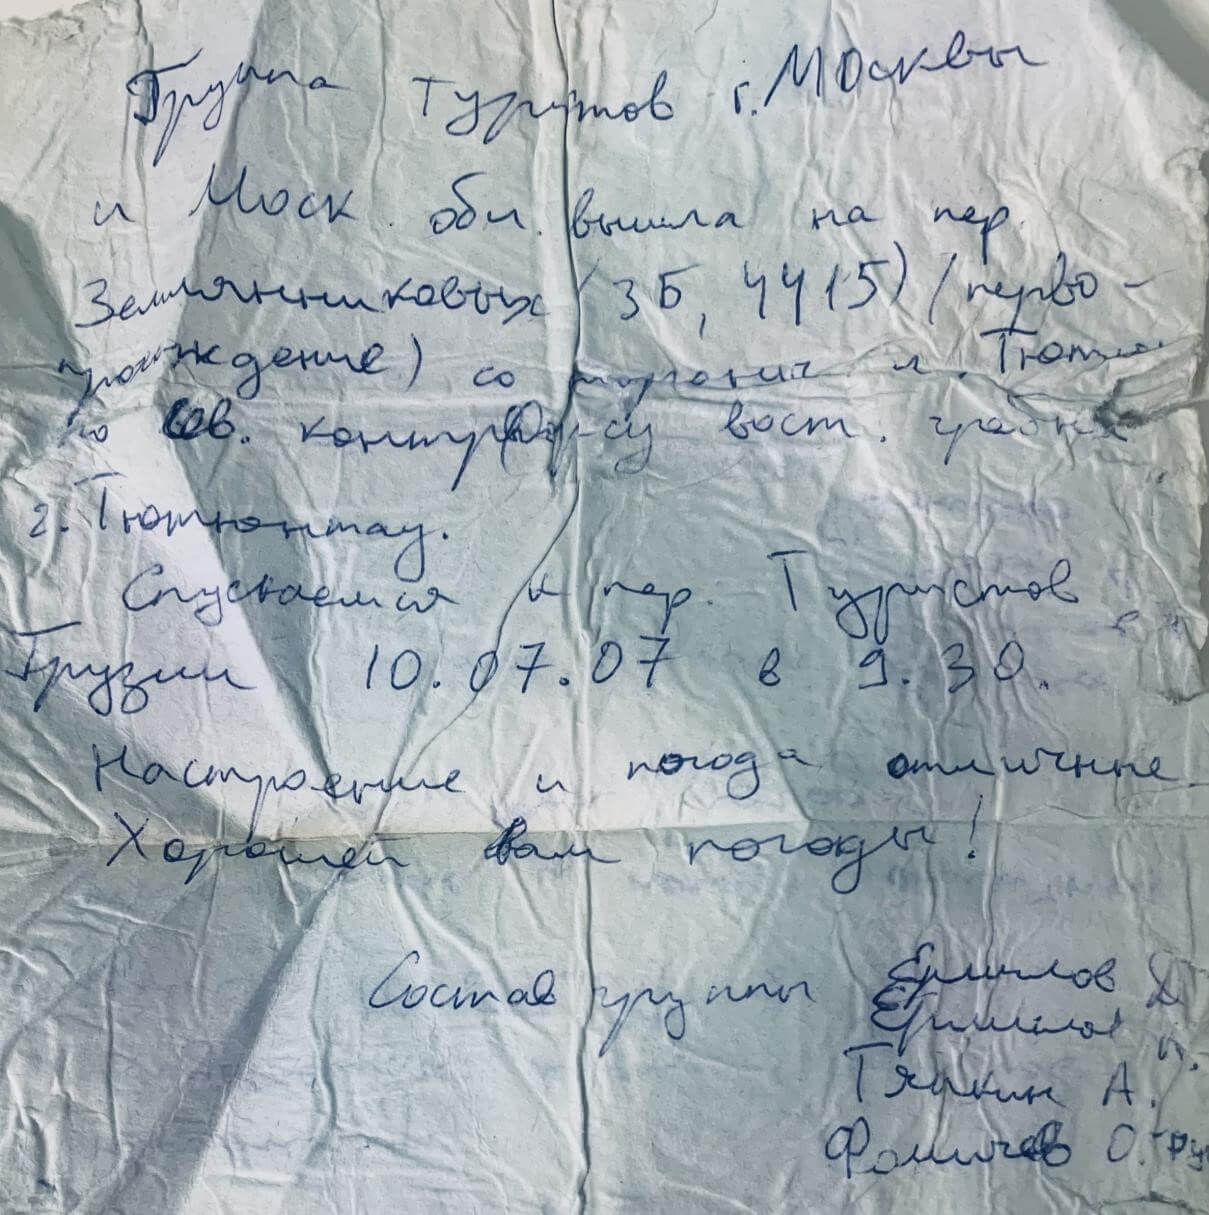 Группа туристов г. Москвы
и Моск. обл. вышла на пер.
Земляниковых (3Б, 4415) /перво-
прохождение) со стороны л. Тютю
по сев. контрфорсу вост. гребня
г. Тютюнтау.
Спускаемся к пер. Туристов
Грузии 10.07.07 в 9.30.
Настроение и погода отличные
Хорошей вам погоды!
Состав группы Ермилов Д
Ермилов
Тяпкин А.
Фомичев О.